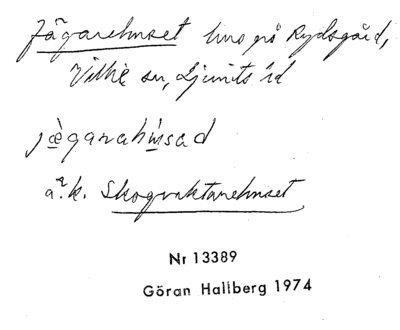 Jägarehuset hus på Rydsgård,
Villie sn, Ljunits hd
jæ̀garahu̇̀sad
ä.k. Skogvaktarehuset
Nr 13389
Göran Hallberg 1974